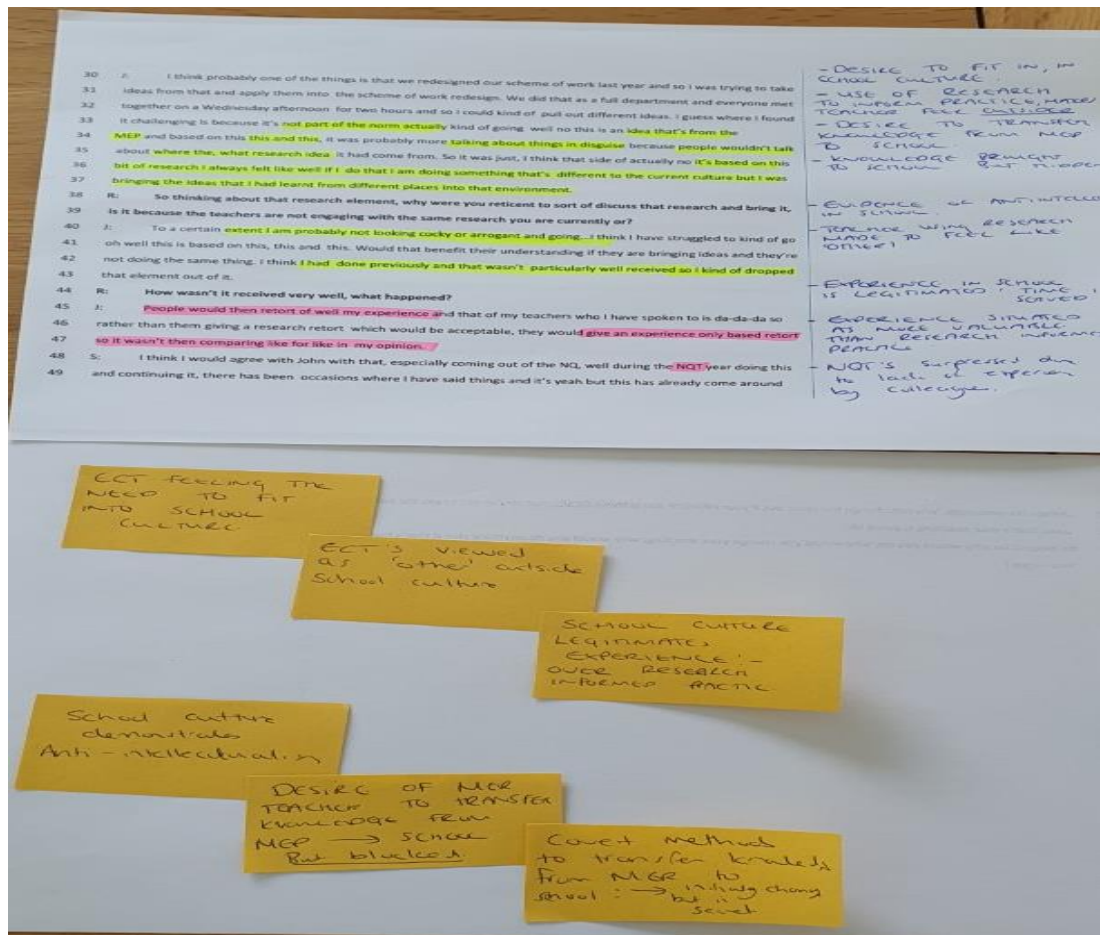 30 J: I think probably one of the things is that we redesigned our scheme of work last year and so I was trying to take
31 ideas from that and apply them into the scheme of work redesign. We did that as a full department and everyone met
32 together on a Wednesday afternoon for two hours and so I could kind of pull out different ideas. I guess where I found
33 it challenging is because it's not part of the norm actually kind of going well no this is an idea that's from the
34 MEP and based on this this and this, it was probably more talking about things in disguise because people wouldn't talk
35 about where the, what research idea it had come from. So it was just, I think that side of actually no it's based on this
36 bit of research I always felt like well if I do that I am doing something that's different to the current culture but I was
37 bringing the ideas that I had learnt from different places into that environment.
38 R: So thinking about that research element, why were you reticent to sort of discuss that research and bring it,
39 is it because the teachers are not engaging with the same research you are currently or?
40 J: To a certain extent I am probably not looking cocky or arrogant and going...I think I have struggled to kind of go
41 oh well this is based on this, this and this. Would that benefit their understanding if they are bringing ideas and they're
42 not doing the same thing. I think I had done previously and that wasn't particularly well received so I kind of dropped
43 that element out of it.
44 R: How wasn't it received very well, what happened?
45 J: People would then retort of well my experience and that of my teachers who I have spoken to is da-da-da so
46 rather than them giving a research retort which would be acceptable, they would give an experience only based retort
47 so it wasn't then comparing like for like in my opinion.
48 S: I think I would agree with John with that, especially coming out of the NQ, well during the NQT year doing this
49 and continuing it, there has been occasions where I have said things and it's yeah but this has already come around
- DESIRE TO FIT IN, IN
SCHOOL CULTURE.
- USE OF RESEARCH
TO INFORM PRACTICE, MAKES
TEACHER FEEL OUTSIDER
- DESIRE TO TRANSFER
KNOWLEDGE FROM MEP
TO SCHOOL
- KNOWLEDGE BROUGHT
TO SCHOOL BUT HIDDEN
- EVIDENCE OF
IN SCHOOL
- TEACHER USING RESEARCH
MADE TO FEEL LIKE
'OTHER'
- EXPERIENCE IN SCHOOL
IS LEGITIMATED: TIME
SERVED
- EXPERIENCE SITUATED
AS MORE VALUABLE
THAN RESEARCH INFORMED
PRACTICE
- NQT's suppressed due
to lack of
by colleagues.
ECT FEELING THE
NEED TO FIT
INTO SCHOOL
CULTURE
ECT's viewed
as 'other' outside
School culture
SCHOOL CULTURE
LEGITIMATES
EXPERIENCE
OVER RESEARCH
INFORMED PACTIC
School culture
demonstrates
Anti-intellectualism
DESIRE OF
TEACHER TO TRANSFER
KNOWLEDGE FROM
MEP → SCHOOL
But blocked.
Covert methods
to transfer
from to
school: →
but in
secret